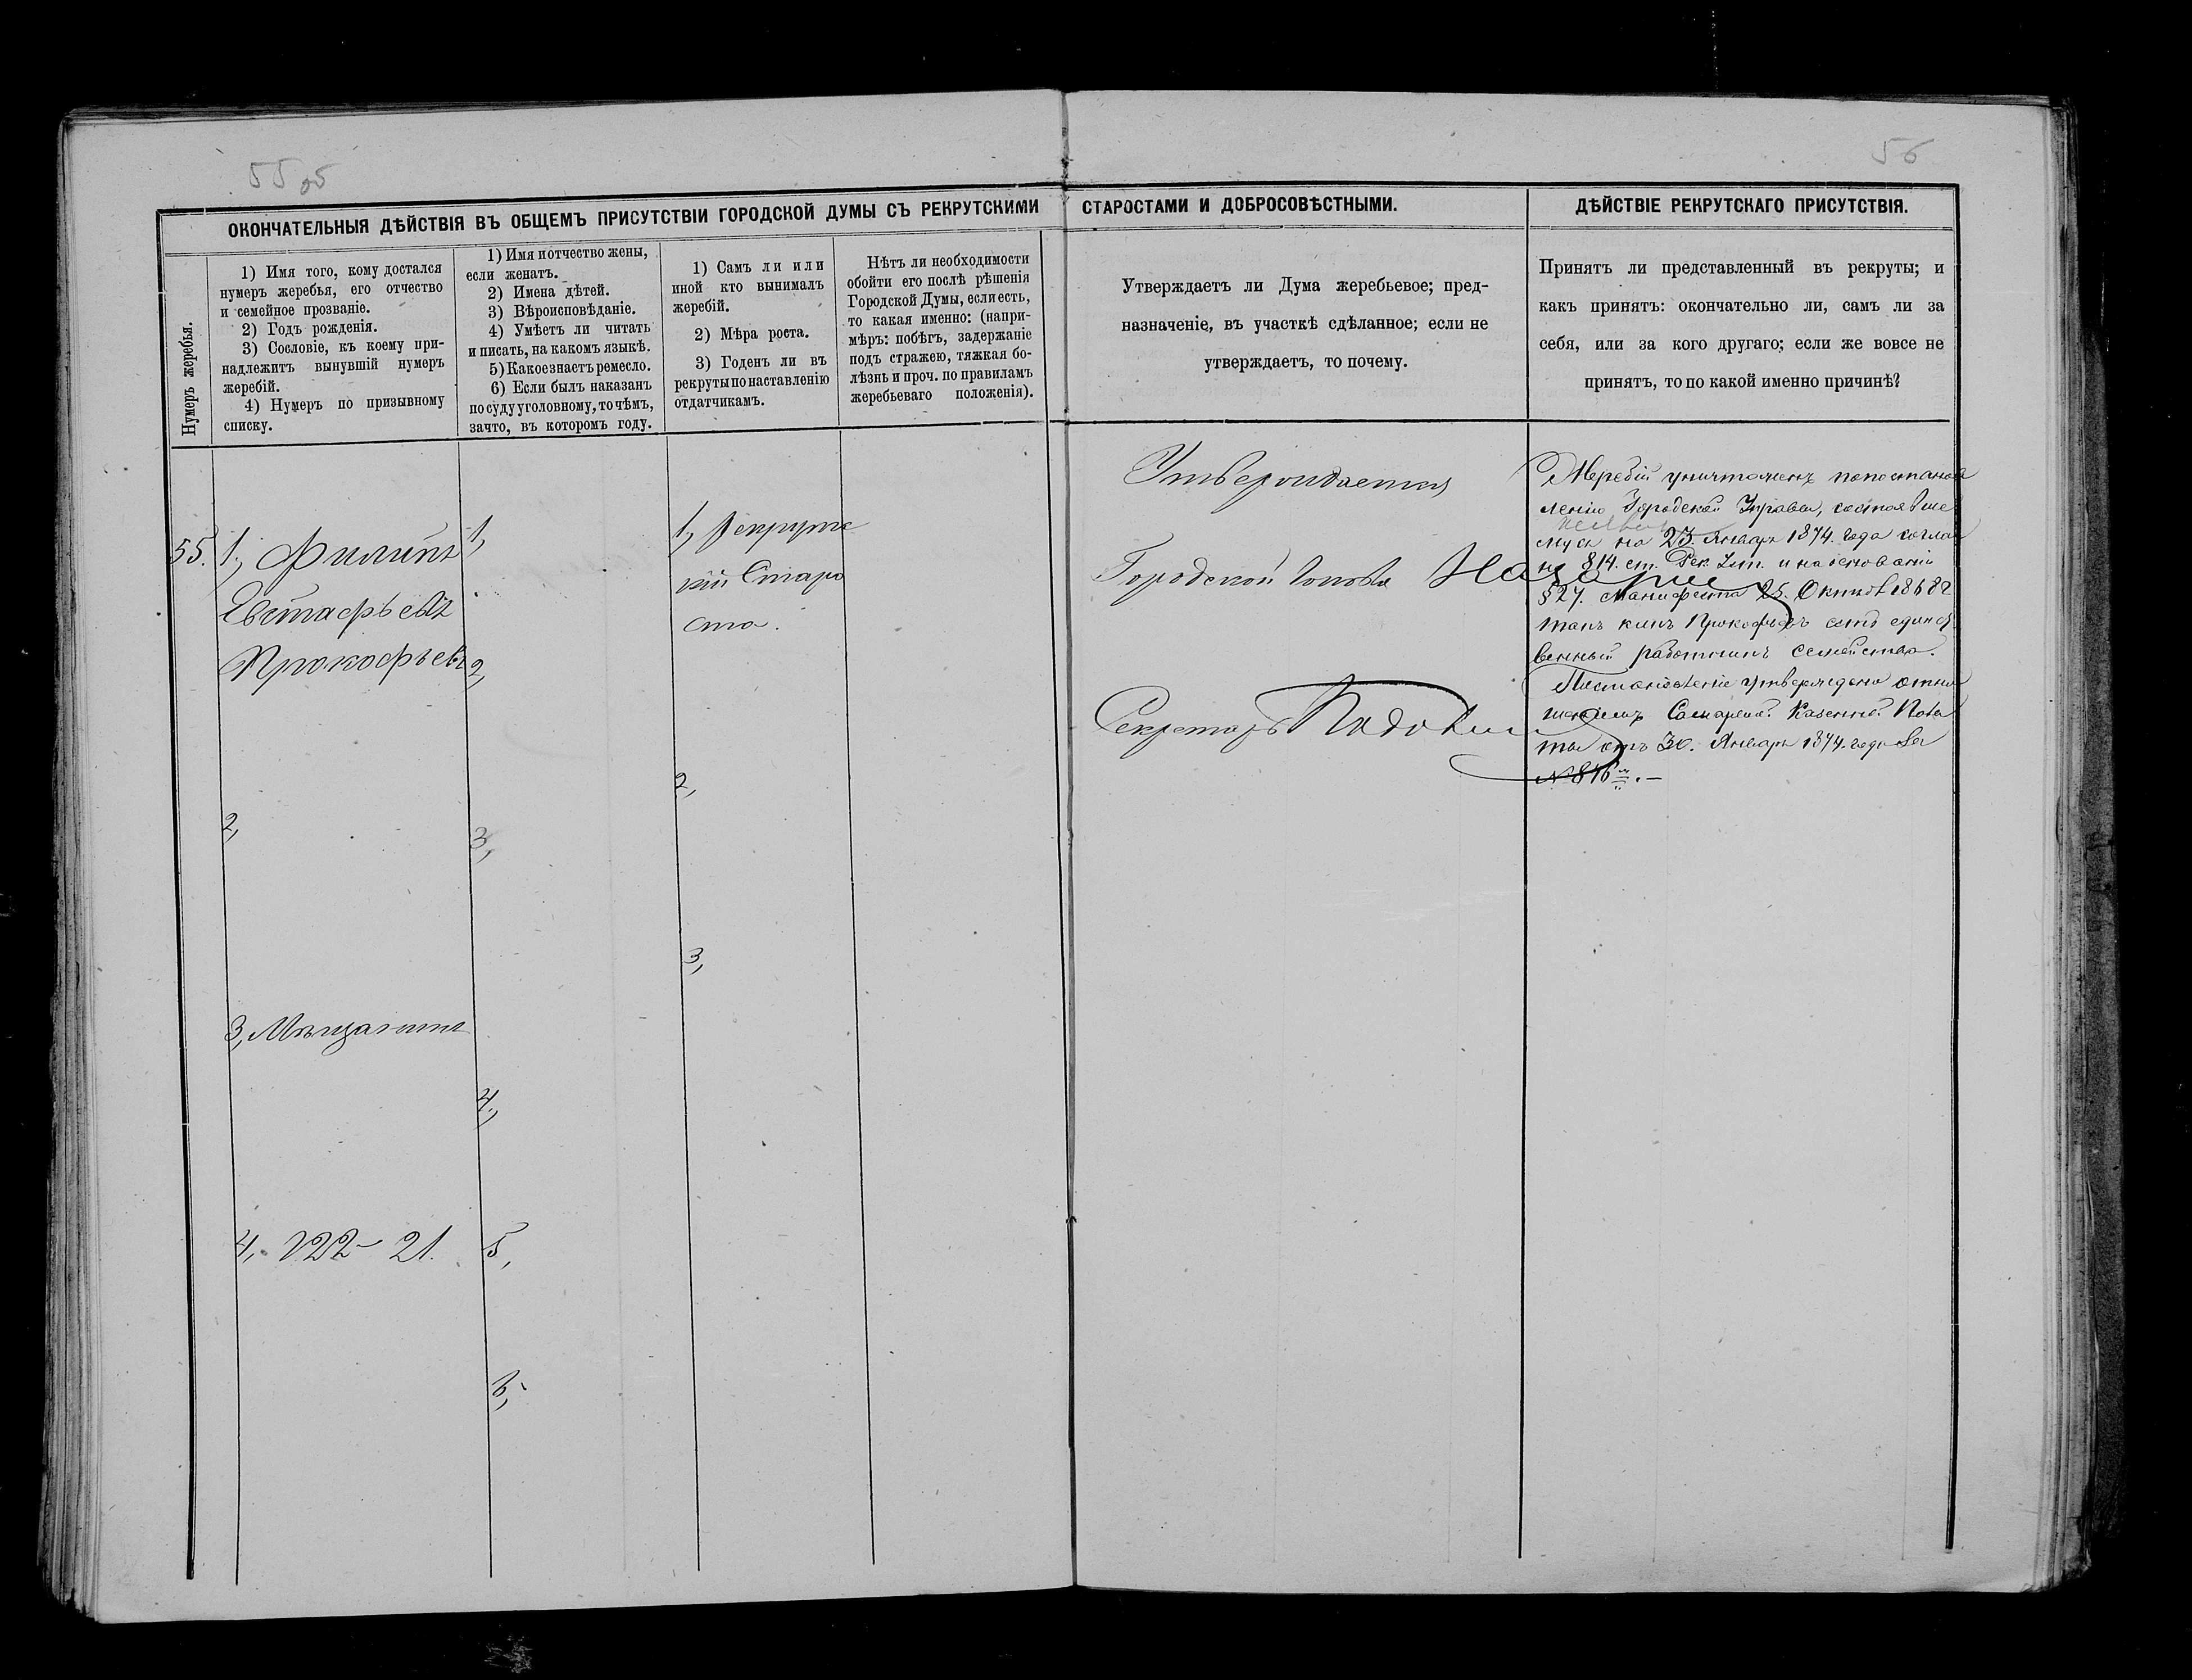 55 об
56
ОКОНЧАТЕЛЬНЫЯ ДѢЙСТВІЯ ВЪ ОБЩЕМЪ ПРИСУТСТВІИ ГОРОДСКОЙ ДУМЫ СЪ РЕКРУТСКИМИ СТАРОСТАМИ И ДОБРОСОВѢСТНЫМИ.
ДѢЙСТВІЕ РЕКРУТСКАГО ПРИСУТСТВІЯ.
Нумеръ жеребья.
1) Имя того, кому достался
нумеръ жеребья, его отчество
и семейное прозваніе.
2) Годъ рожденія.
3) Сословіе, къ коему при-
надлежитъ вынувшій нумеръ
жеребій.
4) Нумеръ по призывному
списку.
1) Имя и отчество жены,
если женатъ.
2) Имена дѣтей.
3) Вѣроисповѣданіе.
4) Умѣетъ ли читать
и писать, на какомъ языкѣ.
5) Какое знаетъ ремесло.
6) Если былъ наказанъ
по суду уголовному, то чѣмъ,
за что, въ которомъ году.
1) Самъ ли или
иной кто вынималъ
жеребій.
2) Мѣра роста.
3) Годенъ ли въ
рекруты по наставленію
отдатчикамъ.
Нѣтъ ли необходимости
обойти его послѣ рѣшенія
Городской Думы, если есть,
то какая именно: (напри-
мѣръ: побѣгъ, задержаніе
подъ стражею, тяжкая бо-
лѣзнь и проч. по правиламъ
жеребьеваго положенія).
Утверждаетъ ли Дума жеребьевое; пред-
назначеніе, въ участкѣ сдѣланное; если не
утверждаетъ, то почему.
Принятъ ли представленный въ рекруты; и
какъ принятъ: окончательно ли, самъ ли за
себя, или за кого другаго; если же вовсе не
принятъ, то по какой именно причинѣ?
55.
1, Филипъ
Евстафьевъ
Прокофьевъ
2,
3, Мѣщанинъ
4, 122 – 21.
1,
2,
3,
4,
5,
6,
1, Рекрутс
кій Старо
ста.
2,
3,
Утверждается
Городской Голова
Секретарь
Жеребій уничтоженъ по постанов
ленію Городской Управы, состоявше
муся на 23. Января 1874. года соглас
но 814. ст. Рек. Уст. и на основаніи
§ 27. Манифеста 25. Октяб 1868 г
такъ какъ Прокофьевъ есть единст
венный работникъ семейства.
Постановленіе утверждено отно
шеніемъ Самарской Казенной Пала
ты отъ 30. Января 1874. года за
№ 816.–